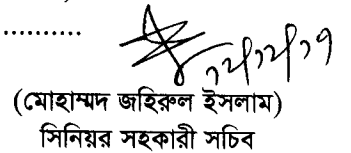 ..........
১২/১২/১৭
(মোহাম্মদ জহিরুল ইসলাম)
সিনিয়র সহকারী সচিব